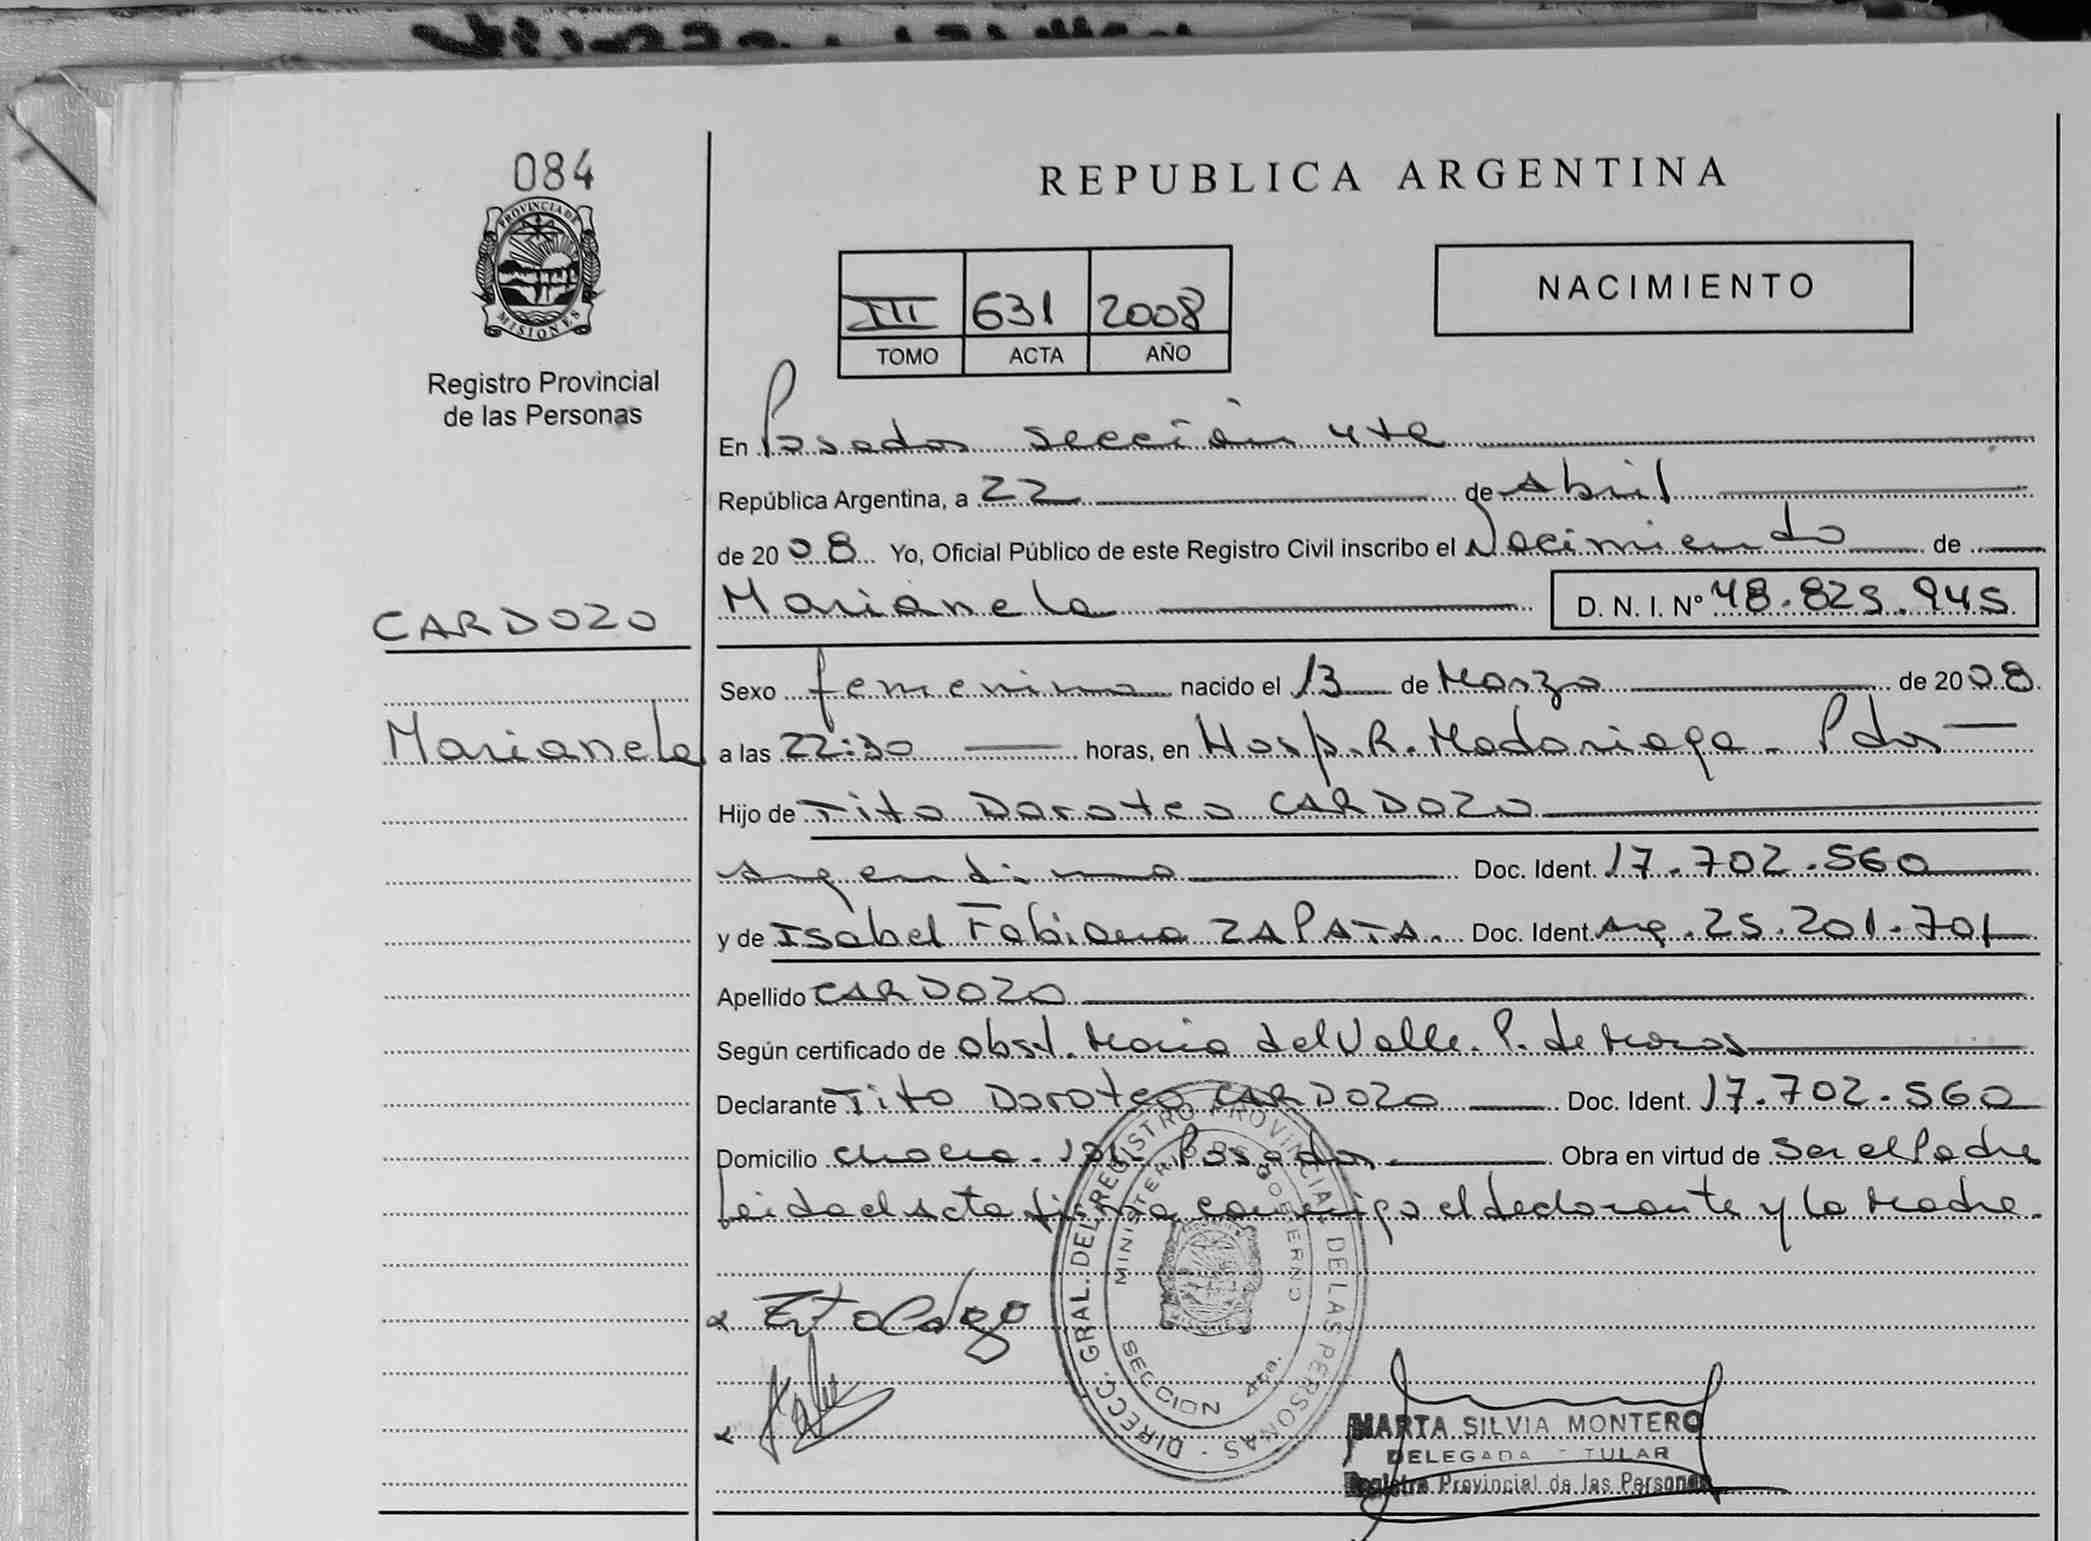 084
PROVINCIA DE
MISIONES
Registro Provincial
de las Personas
REPUBLICA ARGENTINA
III 631 2008
TOMO ACTA AÑO
NACIMIENTO
En Posadas sección 4ta
República Argentina, a 22 de Abril
de 2008 Yo, Oficial Público de este Registro Civil inscribo el Nacimiento de
Marianela D. N. I. Nº 48.825.945
CARDOZO
Sexo femenino nacido el 13 de Marzo de 2008
Marianela
a las 22:30 horas, en Hosp. R. Madariaga - Pdas
Hijo de Tito Doroteo CARDOZO
argentino Doc. Ident. 17.702.560
y de Isabel Fabiana ZAPATA. Doc. Ident. Arg. 25.201.701
Apellido CARDOZO
Según certificado de Obst. Maria del Valle. P. de
Declarante Tito Doroteo CARDOZO Doc. Ident. 17.702.560
Domicilio chacra. Posadas. Obra en virtud de Ser el Padre
Leida el acta firma conmigo el declarante y la Madre.
DIRECC. GRAL. DEL REGISTRO PROVINCIAL DE LAS PERSONAS
MINISTERIO DE GOBIERNO
SECCION 4ta.
MARTA SILVIA MONTERO
DELEGADA TITULAR
Registro Provincial de las Personas